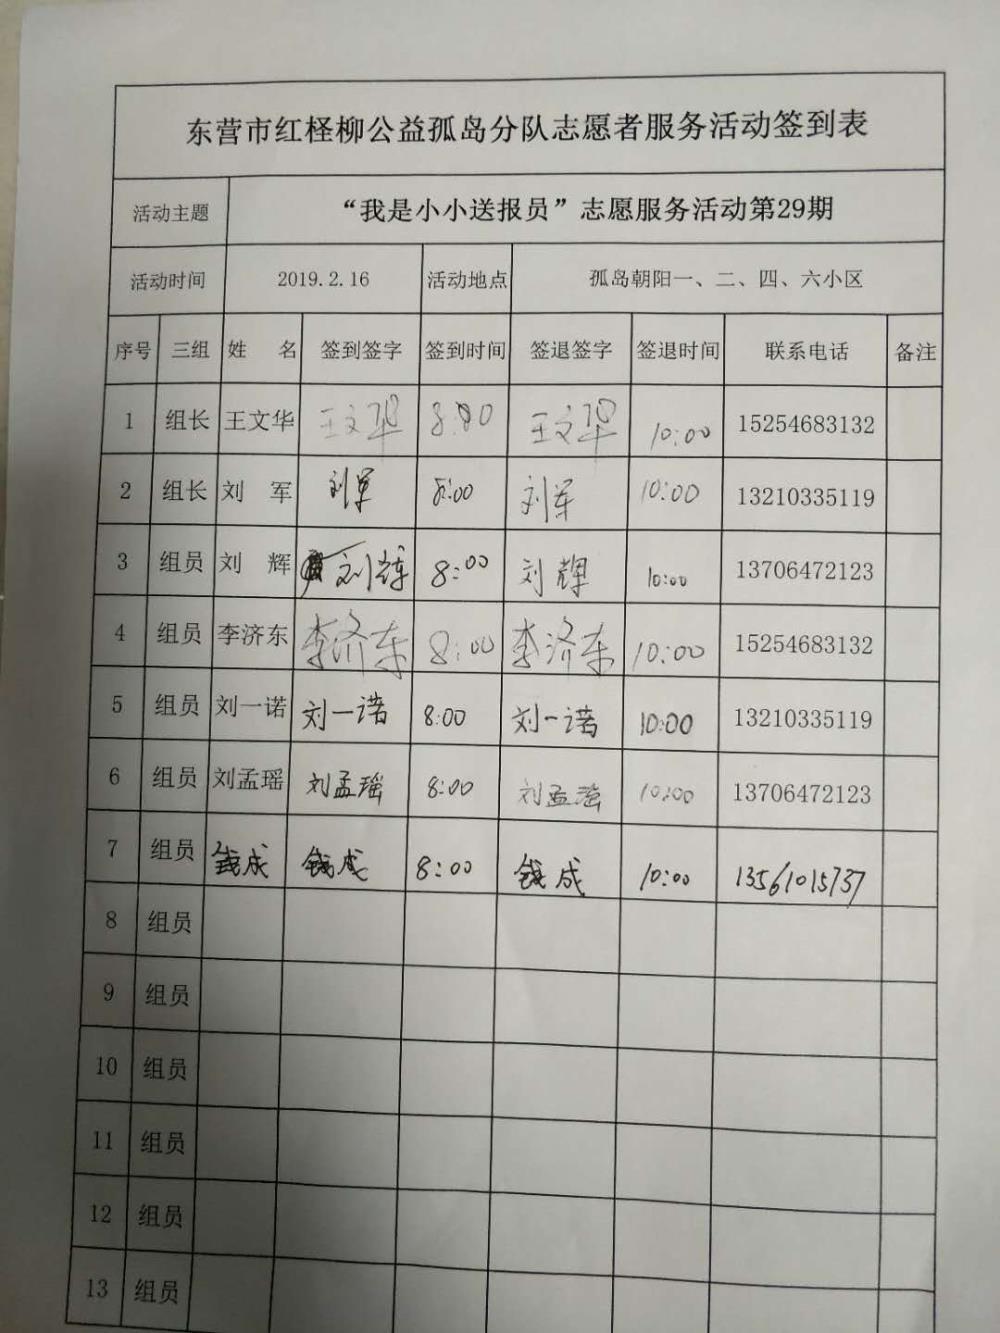 东营市红柽柳公益孤岛分队志愿者服务活动签到表
活动主题 “我是小小送报员”志愿服务活动第29期
活动时间 2019.2.16 活动地点 孤岛朝阳一、二、四、六小区
序号 三组 姓 名 签到签字 签到时间 签退签字 签退时间 联系电话 备注
1 组长 王文华 王文华 8:00 王文华 10:00 15254683132
2 组长 刘 军 刘军 8:00 刘军 10:00 13210335119
3 组员 刘 辉 刘辉 8:00 刘辉 10:00 13706472123
4 组员 李济东 李济东 8:00 李济东 10:00 15254683132
5 组员 刘一诺 刘一诺 8:00 刘一诺 10:00 13210335119
6 组员 刘孟瑶 刘孟瑶 8:00 刘孟瑶 10:00 13706472123
7 组员 钱成 钱成 8:00 钱成 10:00 13561015737
8 组员
9 组员
10 组员
11 组员
12 组员
13 组员